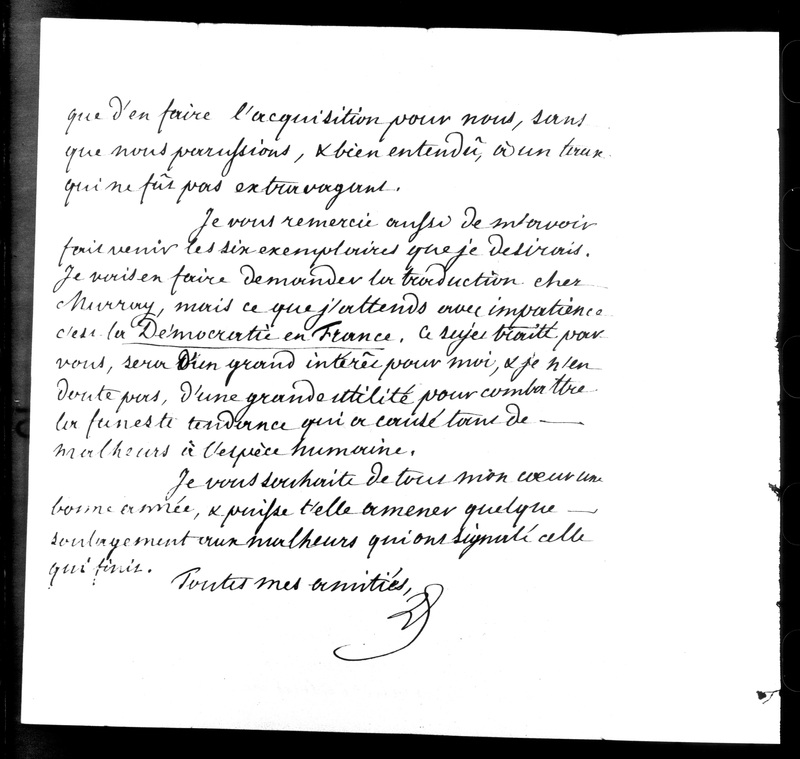 que d'en faire l'acquisition pour nous, sans
que nous parussions, & bien entendû, à un taux
qui ne fût pas extravagant.
Je vous remercie aussi de m'avoir
fait venir les six exemplaires que je desirais.
Je vais en faire demander la traduction chez
Murray, mais ce que j'attends avec impatience
c'est la Démocratie en France. Ce sujet traité par
vous, sera d'un grand intérêt pour moi, & je n'en
doute pas, d'une grande utilité pour combattre
la funeste tendance qui a causé tant de —
malheurs à l'espèce humaine.
Je vous souhaite de tout mon cœur une
bonne année, & puisse t'elle amener quelque —
soulagement aux malheurs qui ont signalé celle
qui finit.
Toutes mes amitiés,